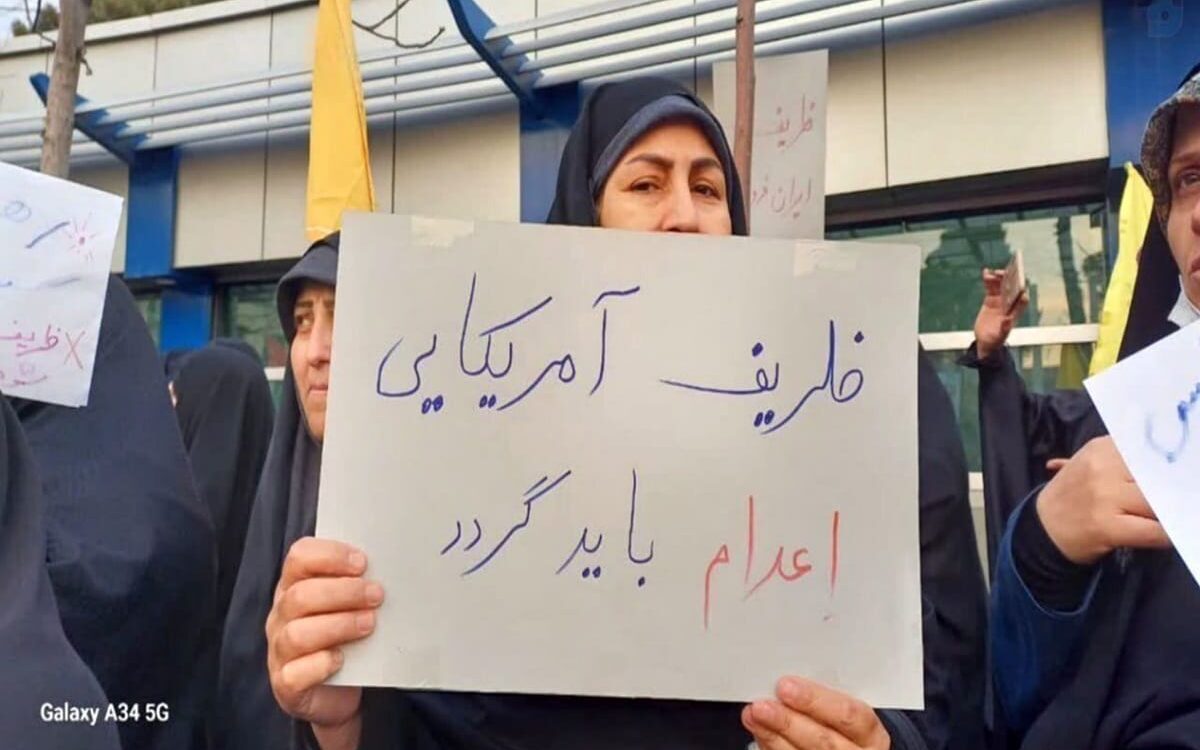 ظریف آمریکایی
اعدام باید گردد
ظریف
ایران فرو
ظریف
Galaxy A34 5G